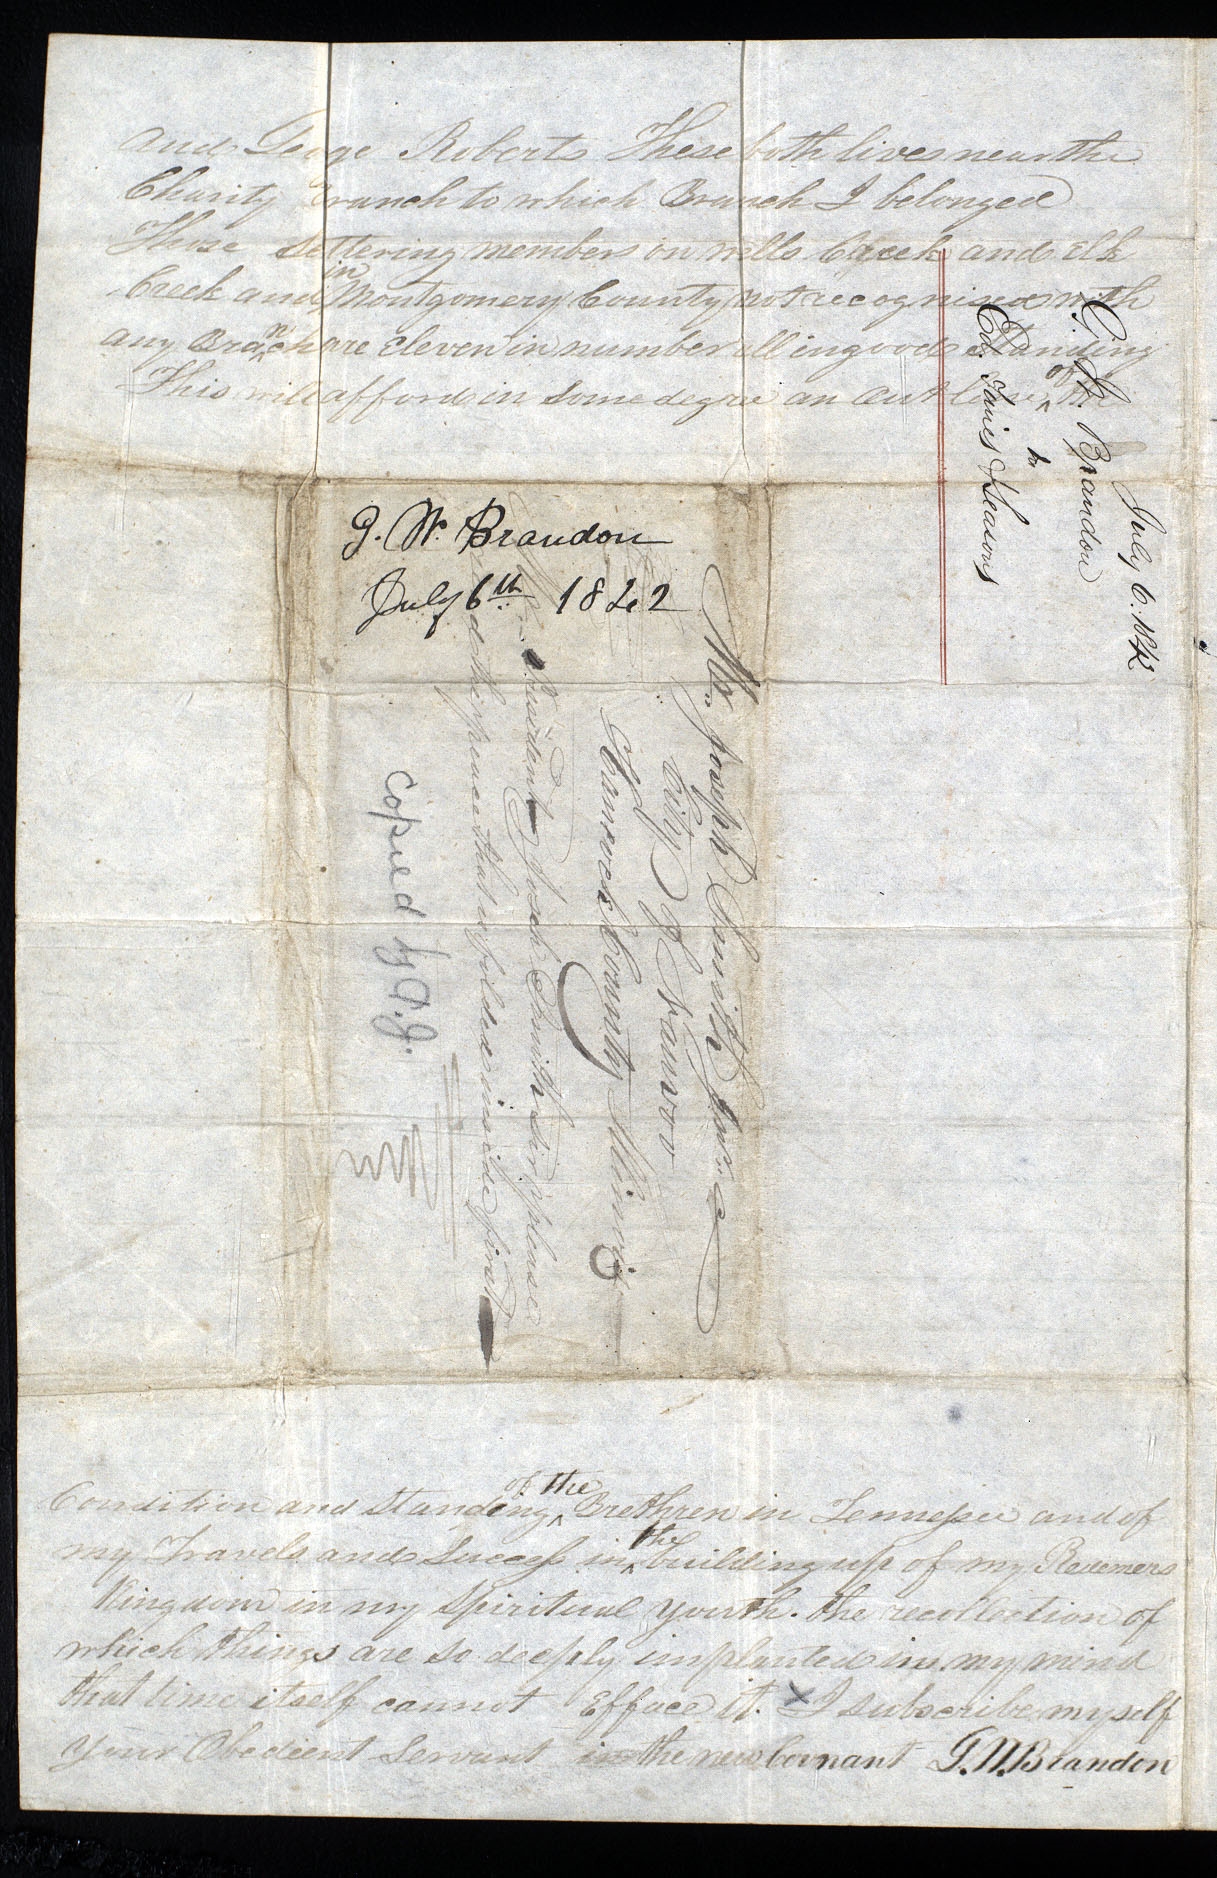 and George Roberts These both lives near the
Charity Branch to which Branch I belonged
These settering members on wells Creek and Elk
Creek and in Montgomery County not recognised with
any Branch are Eleven in number all in good standing
This will afford in some degree an out line of the
G. W. Brandon
July 6th 1842
July 6. 1842
G. W. Brandon
to
Ed. Times & Seasons
Mr. Joseph Smith Junr
City of Nauvoo
Hancock County Illinois
President Joseph Smith Sir please
the peace that is filded inside first
Copied by D.J.
Condition and standing of the Brethren in Tennessee and of
my Travels and Success in the building up of my Redemers
Kingdom in my Spiritual youth. the recollection of
which things are so deeply implanted in my mind
that time itself cannot Efface it. X I subscribe myself
your Obedient Servant in the new Covnant G. W. Brandon